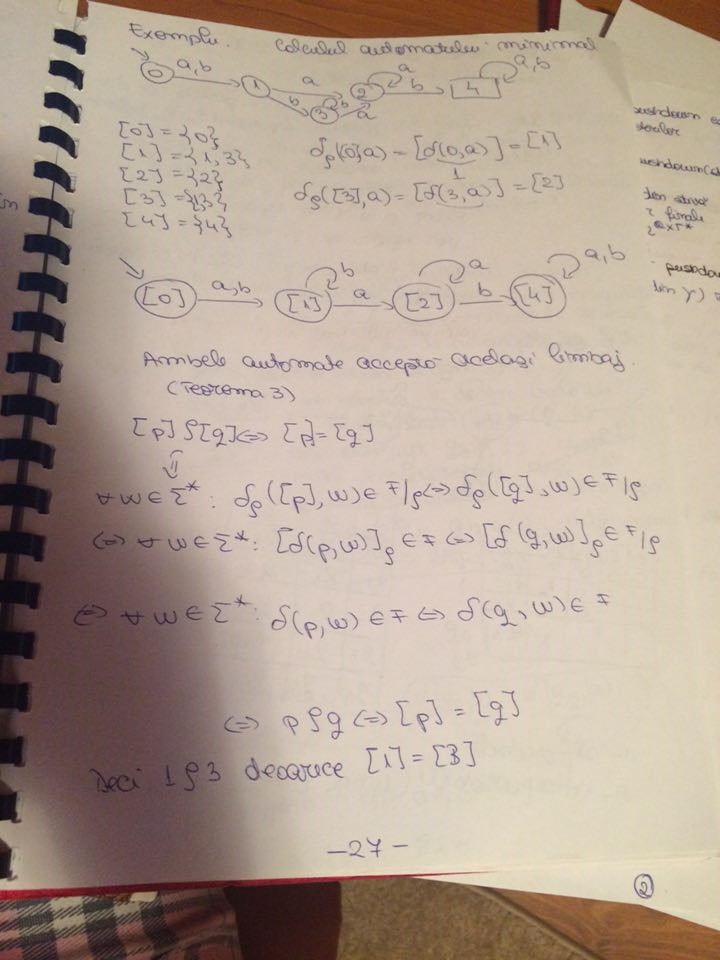 Exemplu. Calculul automatului minimal
0 a,b 1 a 2 a b 4 a,b
b 3 b a
[0] = {0}
[1] = {1,3}
[2] = {2}
[3] = {1,3}
[4] = {4}
δρ([0],a) = [δ(0,a)] = [1]
1
δρ([3],a) = [δ(3,a)] = [2]
[0] a,b [1] b a [2] a b [4] a,b
Ambele automate acceptă același limbaj.
(Teorema 3)
[p] ρ [q] ⇔ [p] = [q]
⇕
∀ w ∈ Σ* : δρ([p],w) ∈ F/ρ ⇔ δρ([q],w) ∈ F/ρ
⇔ ∀ w ∈ Σ* : [δ(p,w)]ρ ∈ F ⇔ [δ(q,w)]ρ ∈ F/ρ
⇔ ∀ w ∈ Σ* : δ(p,w) ∈ F ⇔ δ(q,w) ∈ F
⇔ p ρ q ⇔ [p] = [q]
Deci 1 ρ 3 deoarece [1] = [3]
- 27 -
2
pushdown
finale
pushdown